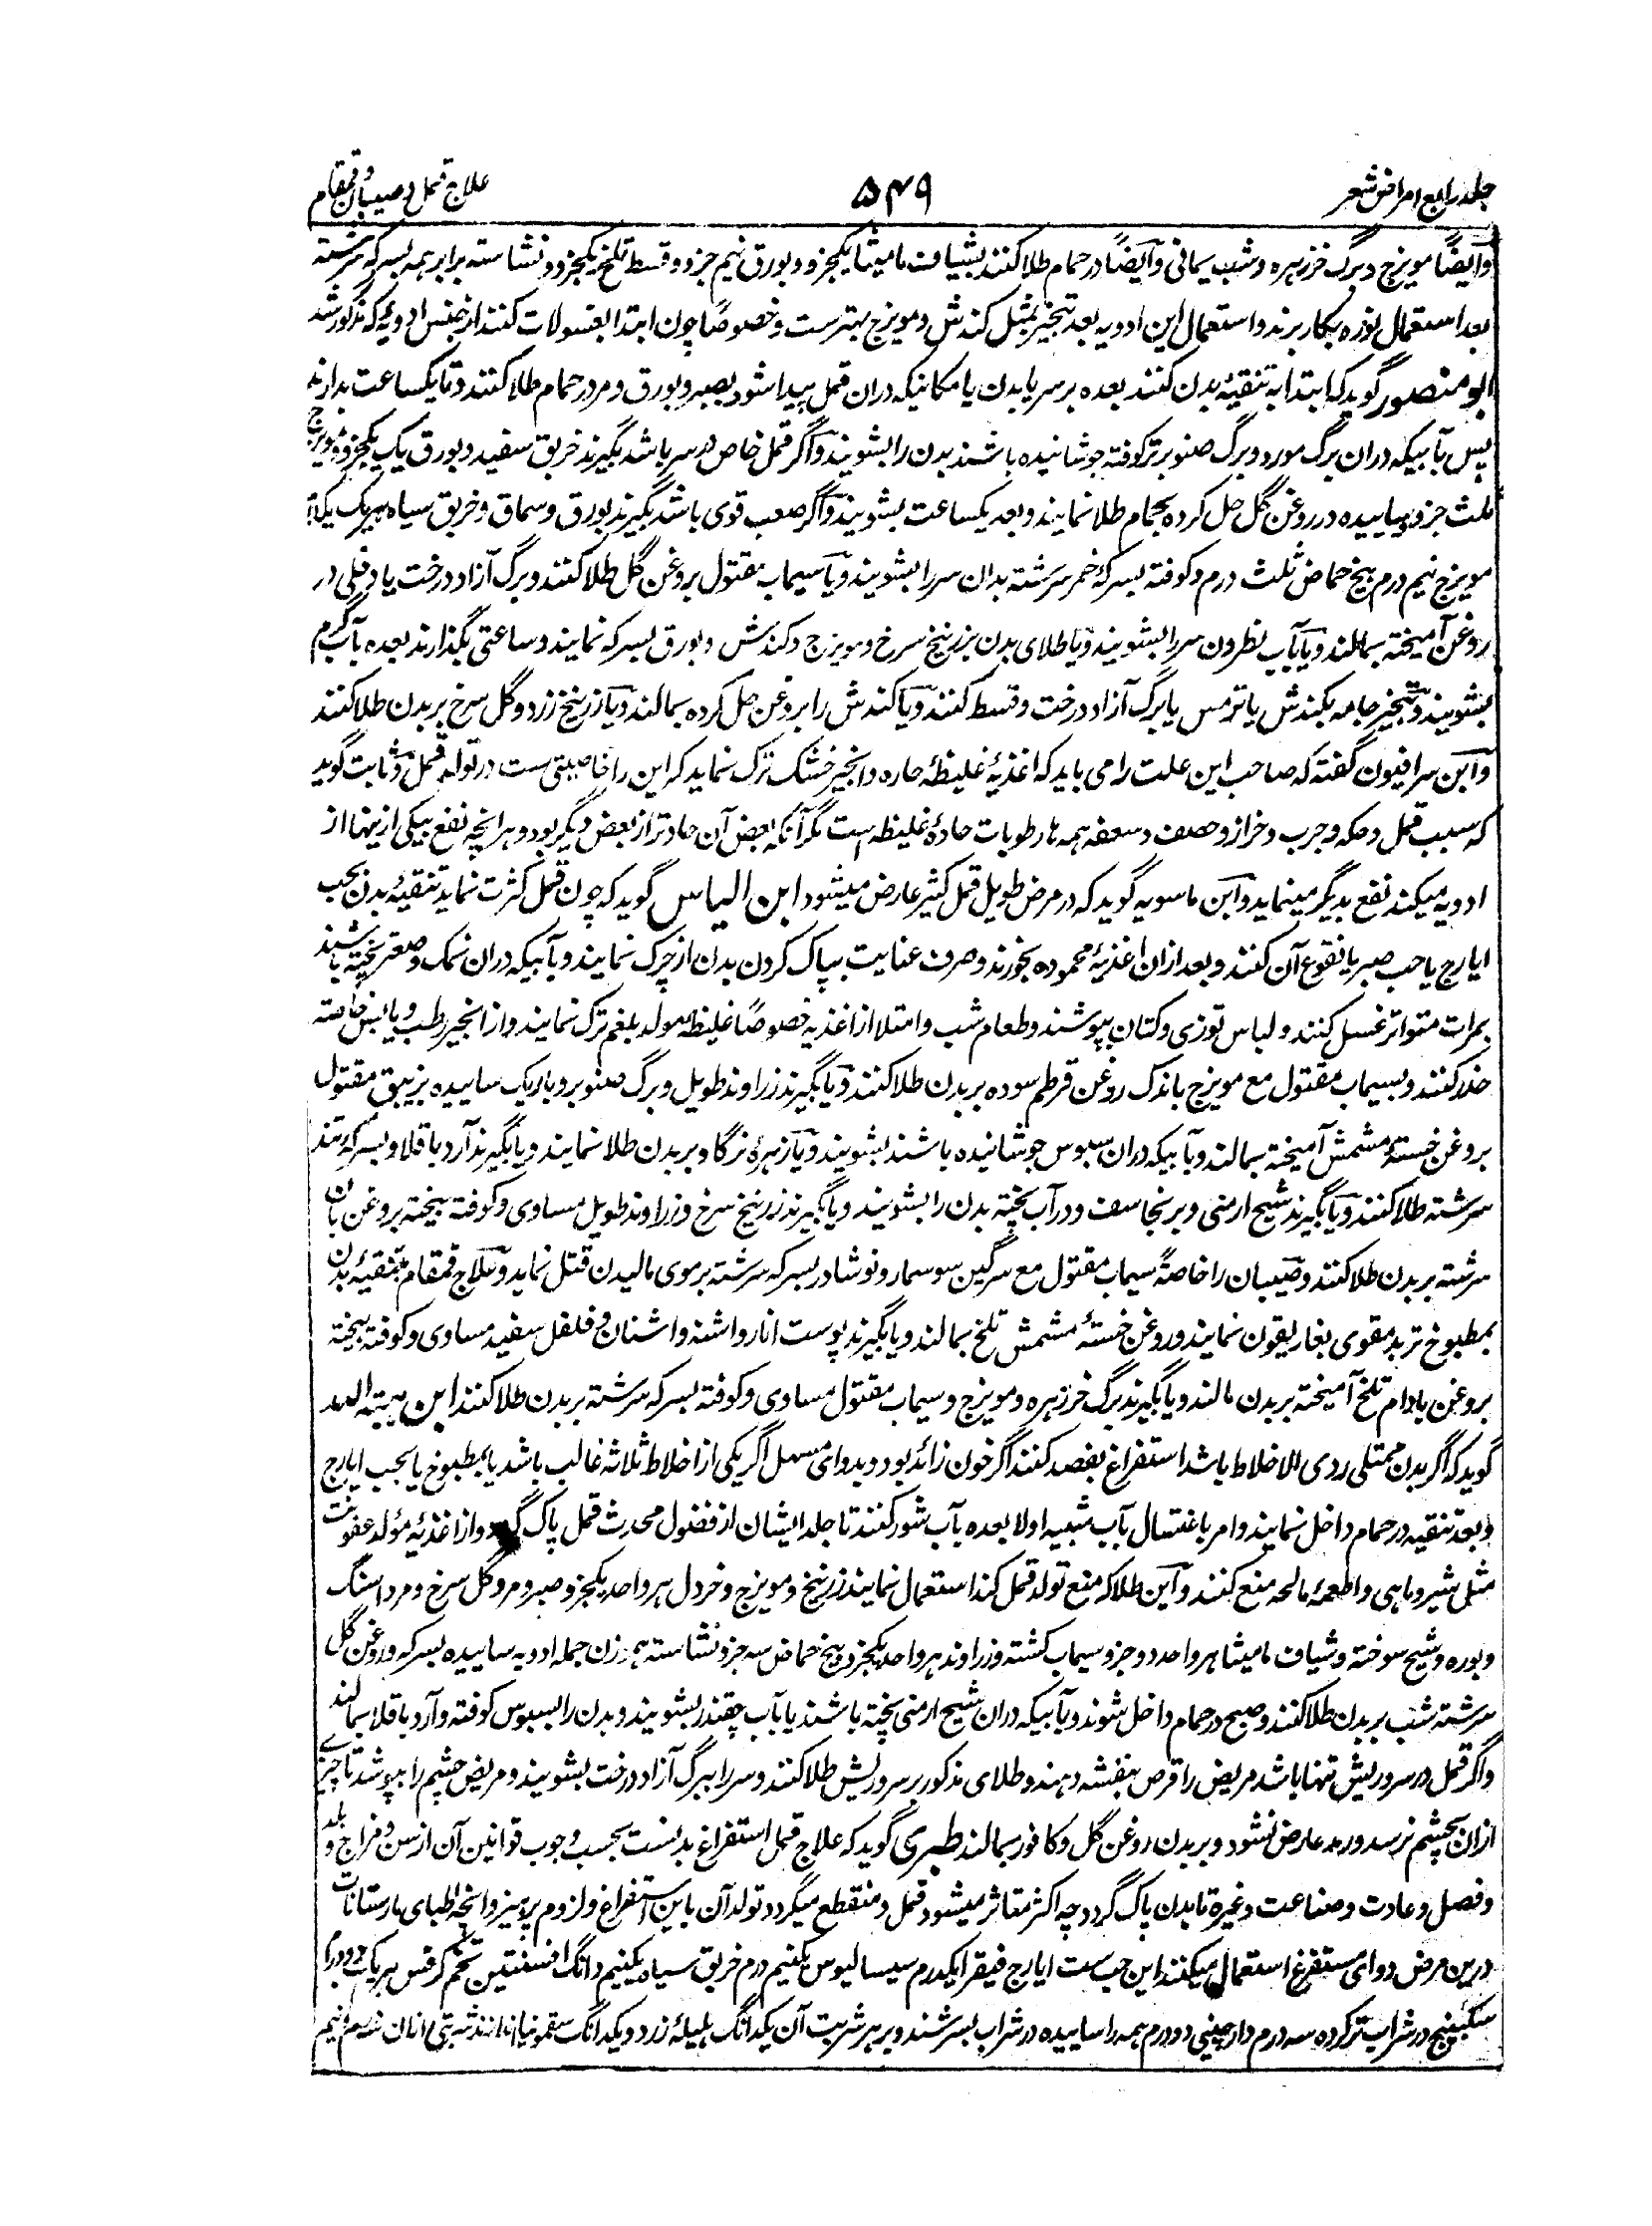 جلد رابع امراض شعر
۵۴۹
علاج قمل و صیبان و قمقام
وایضاً مویزج و برگ خرزہرہ و شب یمانی وایضاً در حمام طلا کنند بشیاف مامیثا یکجزو و بورق نیم جزو و قسط تلخ یکجزو و نشاستہ برابر ہمہ بسرکہ سرشتہ
بعد استعمال نورہ بکار برند و استعمال این ادویہ بعد تبخیر بمثل کندش و مویزج بہترست و خصوصاً چون ابتدا بغسولات کنند از جنس ادویہ کہ مذکور شد
ابو منصور گوید کہ ابتدا بہ تنقیۂ بدن کنند بعدہ بر سر یا بدن یا مکانیکہ دران قمل پیدا شود بصبر و بورق و مر در حمام طلا کنند و تا یکساعت بدارند
پس بآبیکہ دران برگ مورد و برگ صنوبر تر کوفتہ جوشانیدہ باشند بدن را بشویند و اگر قمل خاص در سر باشد بگیرند خربق سفید و بورق یک یکجزو و مویزج
ثلث جزو و ساییدہ در روغن گل حل کردہ بحمام طلا نمایند و بعد یکساعت بشویند و اگر صعب قوی باشد بگیرند بورق و سماق و خربق سیاہ ہریک
مویزج نیم درم بیخ حماض ثلث درم و کوفتہ بسرکۂ خمر سرشتہ بدان سر را بشویند و یا سیماب مقتول بروغن گل طلا کنند و برگ آزاد درخت یا دفلی در
روغن آمیختہ بمالند و یا بآب نطرون سر را بشویند و یا طلای بدن بزرنیخ سرخ و مویزج و کندش و بورق بسرکہ نمایند و ساعتی بگذارند بعدہ بآب گرم
بشویند و تبخیر جامہ بکندش یا ترمس یا برگ آزاد درخت و قسط کنند و یا کندش را بروغن حل کردہ بمالند و یا زرنیخ زرد و گل سرخ بر بدن طلا کنند
و ابن سرافیون گفتہ کہ صاحب این علت را می باید کہ اغذیۂ غلیظۂ حارہ و انجیر خشک ترک نماید کہ این را خاصیتی ست در تولد قمل و ثابت گوید
کہ سبب قمل و حکہ و جرب و خراز و حصف و سعفہ ہمہ ہا رطوبات حادۂ غلیظہ است مگر آنکہ بعض آن حادتر از بعض دیگر بود و ہرانچہ نفع بیکی ازینہا از
ادویہ میکند نفع بدیگر مینماید و ابن ماسویہ گوید کہ در مرض طویل قمل کثیر عارض میشود ابن الیاس گوید کہ چون قمل کثرت نماید تنقیۂ بدن بحب
ایارج یا حب صبر یا نقوع آن کنند و بعد ازان اغذیۂ محمودہ بخورند و صرف عنایت بپاک کردن بدن از چرک نمایند و بآبیکہ دران نمک و صعتر پختہ باشند
بمرات متواتر غسل کنند و لباس توزی و کتان بپوشند و طعام شب و امتلا از اغذیہ خصوصاً غلیظۂ مولد بلغم ترک نمایند و از انجیر رطب و یابس خاصتہ
حذر کنند و بسیماب مقتول مع مویزج باندک روغن قرطم سودہ بر بدن طلا کنند و یا بگیرند زراوند طویل و برگ صنوبر و باریک ساییدہ بزیبق مقتول
بروغن خستۂ مشمش آمیختہ بمالند و بآبیکہ دران سبوس جوشانیدہ باشند بشویند و یا زہرۂ نرگاو بر بدن طلا نمایند و یا بگیرند آرد باقلا و بسرکۂ تند
سرشتہ طلا کنند و یا بگیرند شیح ارمنی و برنجاسف و در آب پختہ بدن را بشویند و یا بگیرند زرنیخ سرخ و زراوند طویل مساوی و کوفتہ بیختہ بروغن بان
سرشتہ بر بدن طلا کنند و صیبان را خاصۃً سیماب مقتول مع سرگین سوسمار و نوشادر بسرکہ سرشتہ بر موی مالیدن قتل نماید و علاج قمقام بتنقیۂ بدن
بمطبوخ تربد مقوی بغاریقون نمایند و روغن خستۂ مشمش تلخ بمالند و یا بگیرند پوست انار و اشنہ و اشنان و فلفل سفید مساوی و کوفتہ بیختہ
بروغن بادام تلخ آمیختہ بر بدن مالند و یا بگیرند برگ خرزہرہ و مویزج و سیماب مقتول مساوی و کوفتہ بسرکہ سرشتہ بر بدن طلا کنند ابن ہبتہ اللہ
گوید کہ اگر بدن ممتلی ردی الاخلاط باشد استفراغ بفصد کنند اگر خون زائد بود و بدوای مسہل اگر یکی از اخلاط ثلاثہ غالب باشد یا بمطبوخ یا بحب ایارج
و بعد تنقیہ در حمام داخل نمایند و امر باغتسال بآب شبیہ اولا بعدہ بآب شور کنند تا جلد ایشان از فضول محدث قمل پاک گردد و از اغذیۂ مولد عفونت
مثل شیر و ماہی و اطعمۂ مالحہ منع کنند و این طلا کہ منع تولد قمل کند استعمال نمایند زرنیخ و مویزج و خردل ہر واحد یکجزو صبر و مر و گل سرخ و مرداسنگ
و بورہ و شیح سوختہ و شیاف مامیثا ہر واحد دو جزو سیماب کشتہ و زراوند ہر واحد یکجزو بیخ حماض سہ جزو نشاستہ ہموزن جملہ ادویہ ساییدہ بسرکہ و روغن گل
سرشتہ شب بر بدن طلا کنند و صبح در حمام داخل شوند و بآبیکہ دران شیح ارمنی پختہ باشند یا بآب چقندر بشویند و بدن را بسبوس کوفتہ و آرد باقلا بمالند
و اگر قمل در سر و ریش تنہا باشد مریض را قرص بنفشہ دہند و طلای مذکور بر سر و ریش طلا کنند و سر را ببرگ آزاد درخت بشویند و مریض چشم را بپوشد تا چیزے
ازان بچشم نرسد و رمد عارض نشود و بر بدن روغن گل و کافور بمالند طبری گوید کہ علاج قمل استفراغ بدنست بحسب وجوب قوانین آن از سن و مزاج و بلد
و فصل و عادت و صناعت و غیرہ تا بدن پاک گردد چہ اکثر متناثر میشود قمل و منقطع میگردد تولد آن باین استفراغ و لزوم پرہیز و انچہ اطبای مارستانات
درین مرض دوای مستفرغ استعمال میکنند این حب ست ایارج فیقرا یکدرم سیسالیوس یکنیم درم خربق سیاہ یکنیم دانگ افسنتین تخم کرفس ہریک دو درم
سکبینج در شراب تر کردہ سہ درم دارچینی دو درم ہمہ را ساییدہ در شراب بسرشند و بر ہر شربت آن یکدانگ ہلیلۂ زرد و یکدانگ سقمونیا اندازند شربتی ازان